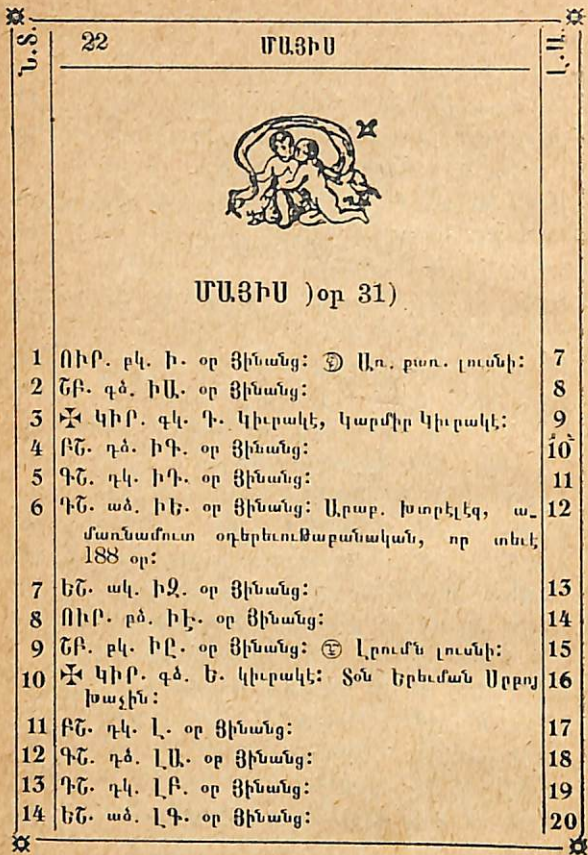 Ն.Տ. 22 ՄԱՅԻՍ Լ.Ա.
ՄԱՅԻՍ )օր 31)
1 ՈՒՐ. բկ. Ի. օր Յինանց։ Առ. քառ. լուսնի։ 7
2 ՇԲ. գձ. ԻԱ. օր Յինանց։ 8
3 ✠ ԿԻՐ. գկ. Դ. Կիւրակէ, Կարմիր Կիւրակէ։ 9
4 ԲՇ. դձ. ԻԳ. օր Յինանց։ 10
5 ԳՇ. դկ. ԻԴ. օր Յինանց։ 11
6 ԴՇ. աձ. ԻԵ. օր Յինանց։ Արաբ. խտրէլէզ, ա- 12
մառնամուտ օդերեւութաբանական, որ տեւէ
188 օր։
7 ԵՇ. ակ. ԻԶ. օր Յինանց։ 13
8 ՈՒՐ. բձ. ԻԷ. օր Յինանց։ 14
9 ՇԲ. բկ. ԻԸ. օր Յինանց։ Լրումն լուսնի։ 15
10 ✠ ԿԻՐ. գձ. Ե. կիւրակէ։ Տօն Երեւման Սրբոյ 16
խաչին։
11 ԲՇ. դկ. Լ. օր Յինանց։ 17
12 ԳՇ. դձ. ԼԱ. օր Յինանց։ 18
13 ԴՇ. դկ. ԼԲ. օր Յինանց։ 19
14 ԵՇ. աձ. ԼԳ. օր Յինանց։ 20